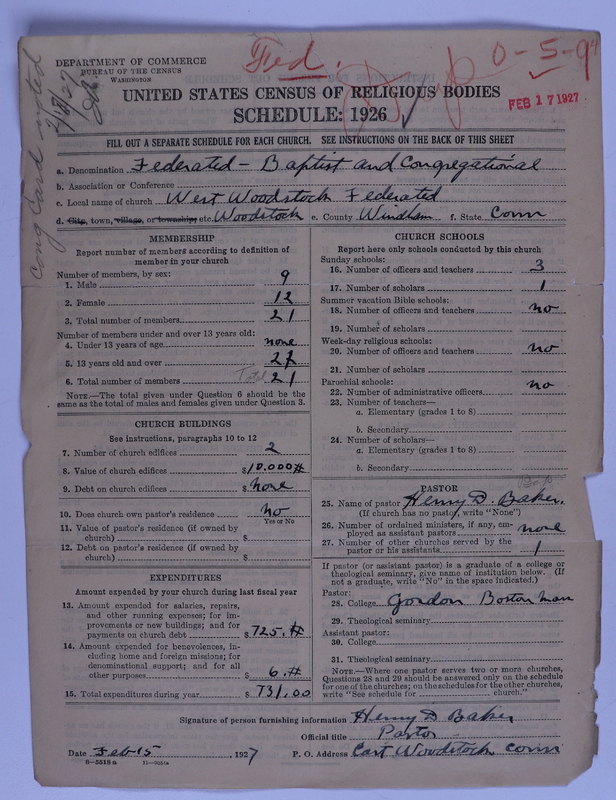 DEPARTMENT OF COMMERCE
BUREAU OF THE CENSUS
WASHINGTON
Fed.
0-5-94
FEB 17 1927
Cong Card noted
2/8/27
UNITED STATES CENSUS OF RELIGIOUS BODIES
SCHEDULE: 1926
FILL OUT A SEPARATE SCHEDULE FOR EACH CHURCH. SEE INSTRUCTIONS ON THE BACK OF THIS SHEET
a. Denomination Federated - Baptist and Congregational
b. Association or Conference
c. Local name of church West Woodstock Federated
d. City, town, village, or township, etc. Woodstock e. County Windham f. State Conn
MEMBERSHIP
Report number of members according to definition of
member in your church
Number of members, by sex:
1. Male 9
2. Female 12
3. Total number of members 21
Number of members under and over 13 years old:
4. Under 13 years of age none
5. 13 years old and over 21
6. Total number of members Total 21
NOTE.—The total given under Question 6 should be
same as the total of males and females given under Question 3.
CHURCH BUILDINGS
See instructions, paragraphs 10 to 12
7. Number of church edifices 2
8. Value of church edifices $10.000#
9. Debt on church edifices $none
10. Does church own pastor's residence no
Yes or No
11. Value of pastor's residence (if owned by
church) $
12. Debt on pastor's residence (if owned by
church) $
EXPENDITURES
Amount expended by your church during last fiscal year
13. Amount expended for salaries, repairs,
and other running expenses; for im-
provements or new buildings; and for
payments on church debt $725.#
14. Amount expended for benevolences, in-
cluding home and foreign missions; for
denominational support; and for all
other purposes $6.#
15. Total expenditures during year $731.00
CHURCH SCHOOLS
Report here only schools conducted by this church
Sunday schools:
16. Number of officers and teachers 3
17. Number of scholars 1
Summer vacation Bible schools:
18. Number of officers and teachers no
19. Number of scholars
Week-day religious schools:
20. Number of officers and teachers no
21. Number of scholars
Parochial schools:
22. Number of administrative officers no
23. Number of teachers—
a. Elementary (grades 1 to 8)
b. Secondary
24. Number of scholars—
a. Elementary (grades 1 to 8)
b. Secondary
PASTOR
Bap
25. Name of pastor Henry D. Baker.
(If church has no pastor, write "None")
26. Number of ordained ministers, if any, em-
ployed as assistant pastors none
27. Number of other churches served by the
pastor or his assistants 1
If pastor (or assistant pastor) is a graduate of a college or
theological seminary, give name of institution below. (If
not a graduate, write "No" in the space indicated.)
Pastor:
28. College Gordon Boston Mass
29. Theological seminary
Assistant pastor:
30. College
31. Theological seminary
NOTE.—Where one pastor serves two or more churches,
Questions 28 and 29 should be answered only on the schedule
for one of the churches; on the schedules for the other churches,
write "See schedule for church."
Signature of person furnishing information Henry D Baker
Official title Pastor
Date Feb-15, 1927 P. O. Address East Woodstock Conn
8-5518a